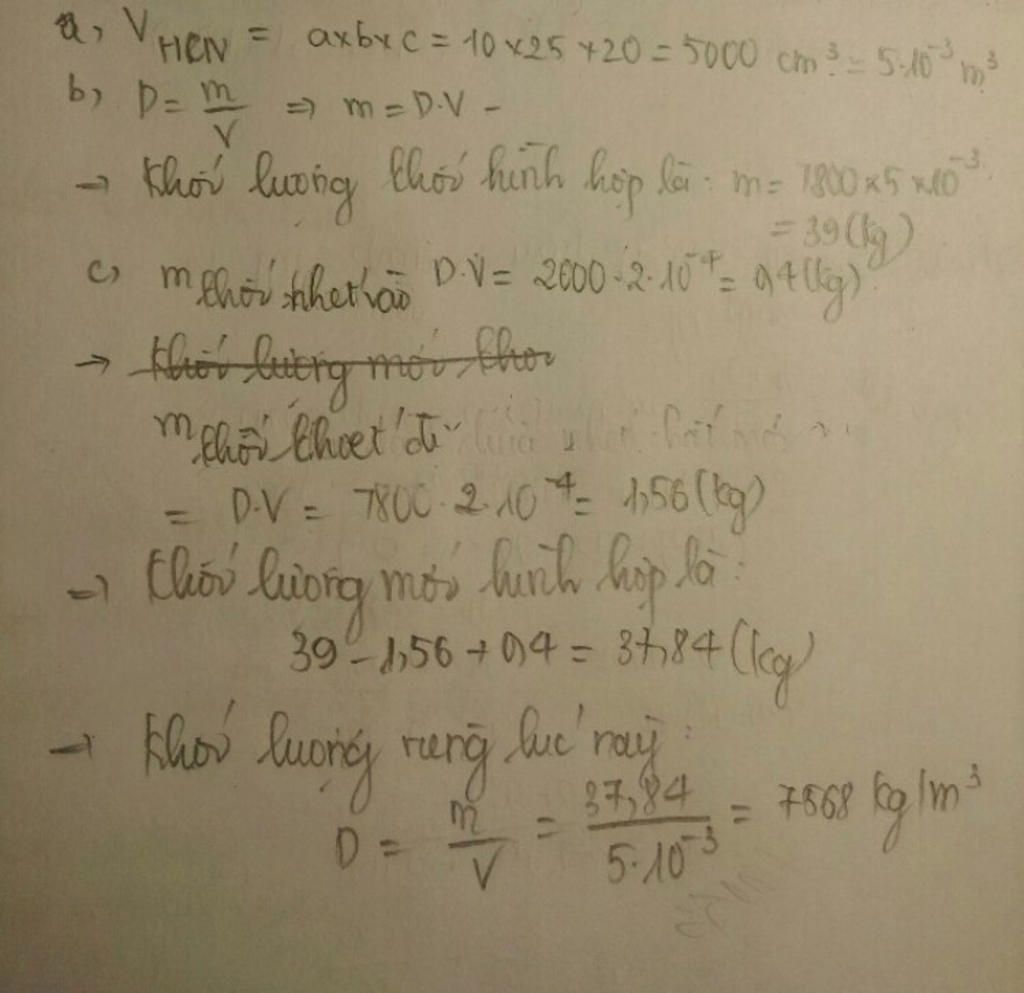 a, V HCN = a×b×c = 10×25×20 = 5000 cm³ = 5·10⁻³ m³
b, D = m/V ⇒ m = D·V -
→ Khối lượng khối hình hộp là: m = 7800×5×10⁻³
= 39 (kg)
c, m khối nhét vào D·V = 2000·2·10⁻⁴ = 0,4 (kg)
→ Khối lượng mới khối
m khối khoét đi
= D·V = 7800·2·10⁻⁴ = 1,56 (kg)
⇒ Khối lượng mới hình hộp là:
39 - 1,56 + 0,4 = 37,84 (kg)
→ Khối lượng riêng lúc này:
D = m/V = 37,84/5·10⁻³ = 7568 kg/m³